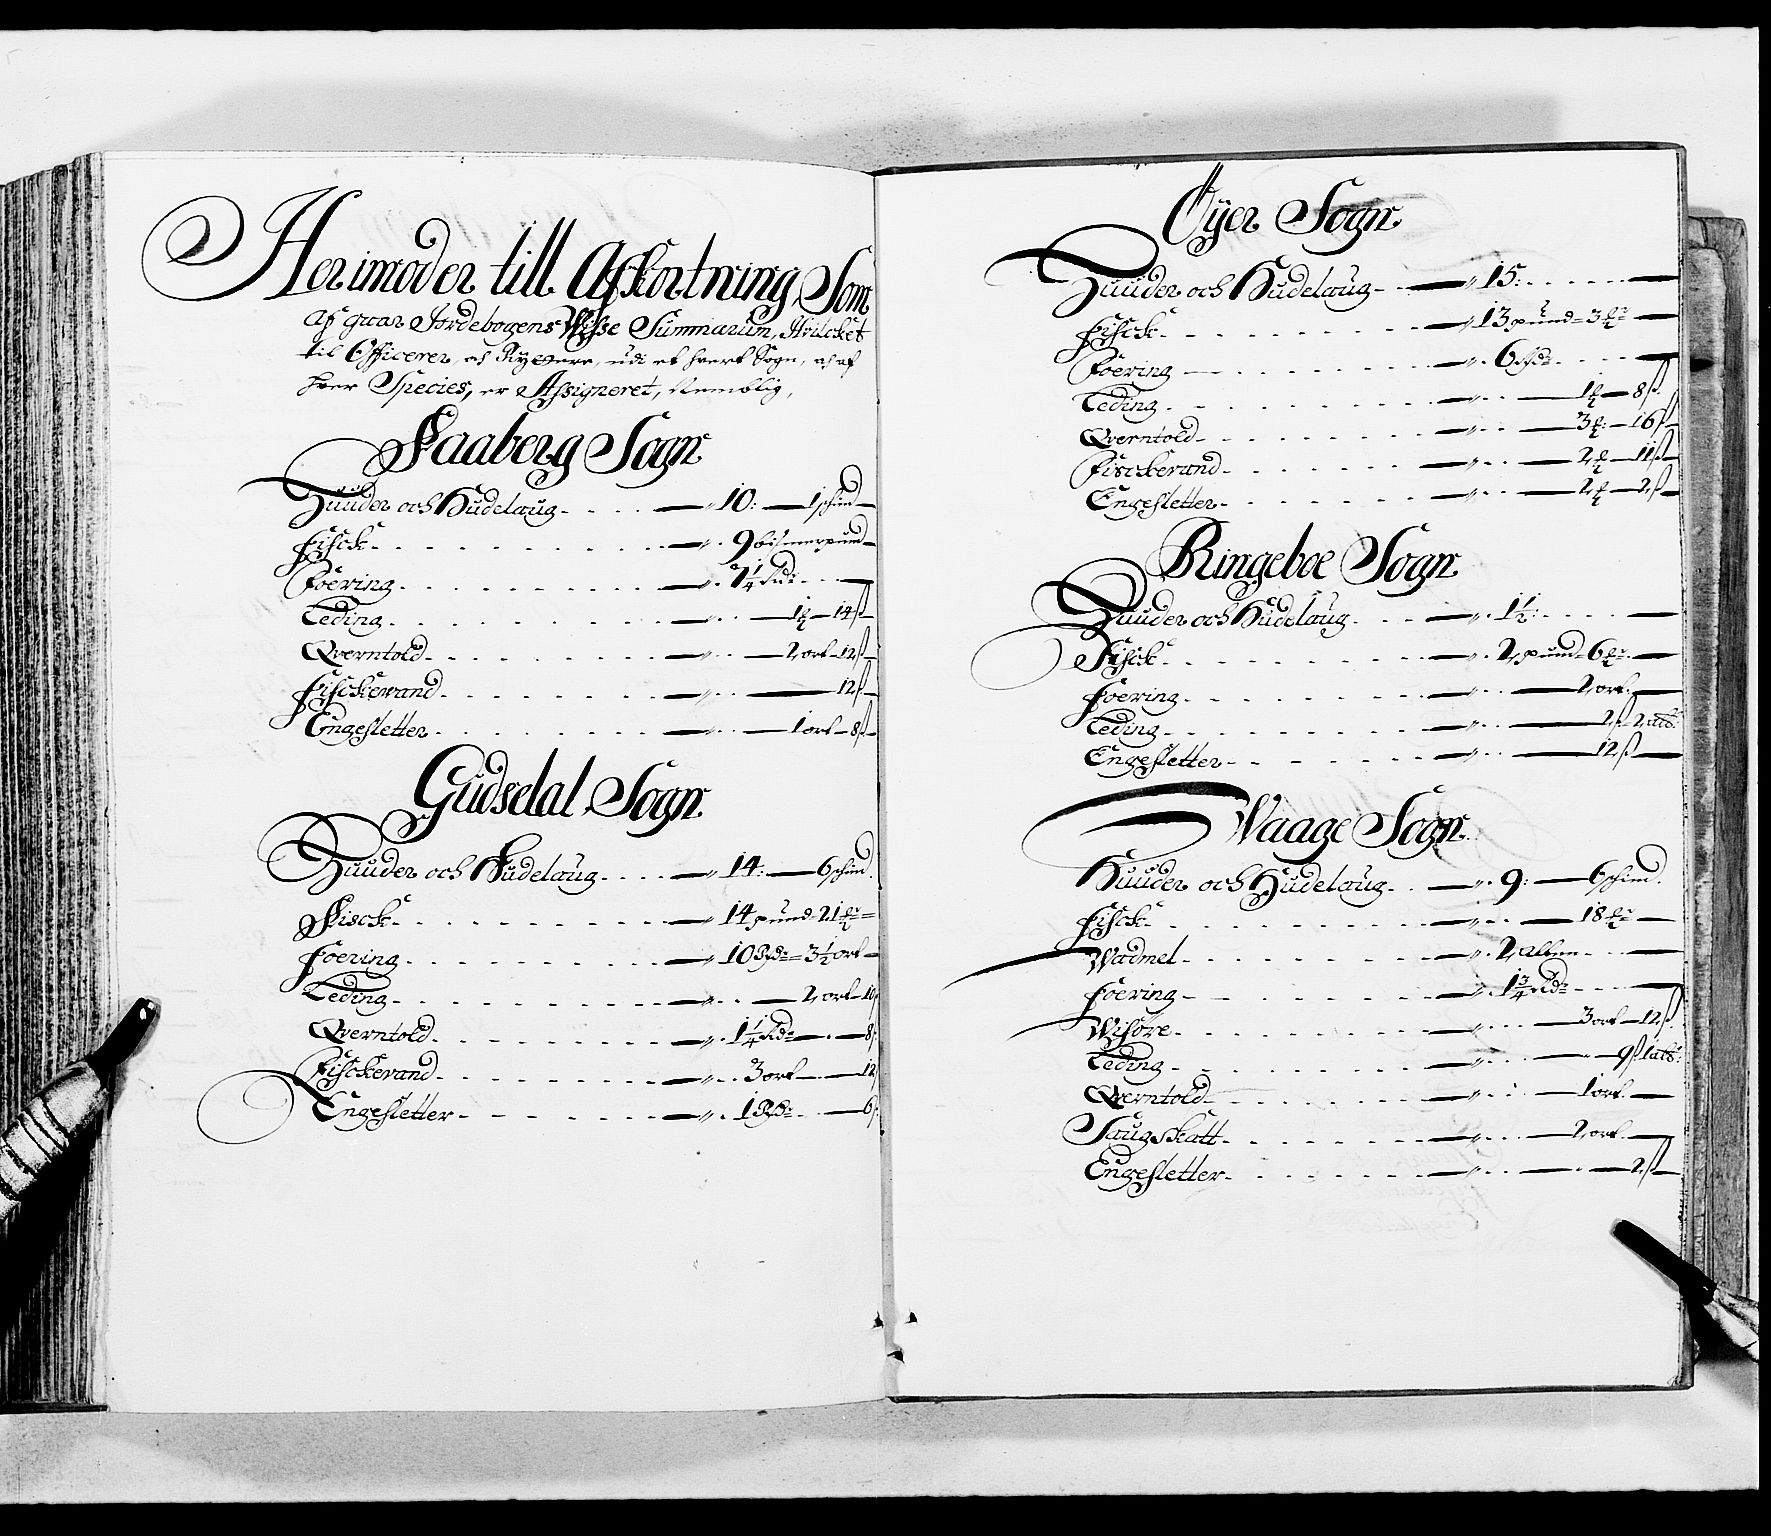 Herimoder till Afkortning Som
Af guar Jordebogens Wisse Summarum, Hvilcket
til Officerer, och Ryttere, udi et hvert Sogn, och af
hver Species, er Assigneret, Nemblig,
Faaberg Sogn
Huuder och Hudelaug - 10: - 1 schind
Fisck - 9 bismerpund
Foering - 7 1/4 Rdr
Leding - 1 ß - 14 ß
Qverntold - 2 ort - 12 ß
Fisckevand - 12 ß
Engesletter - 1 ort - 8 ß
Gudsdal Sogn
Huuder och Hudelaug - 14: - 6 schind.
Fisck - 14 pund - 21
Foering - 10 Rdr - 3 1/2 ort
Leding - 2 ort - 10 ß
Qverntold - 1 1/4 Rdr - 8 ß
Fisckevand - 3 ort - 12
Engesletter - 1 Rdr - 6 ß
Öyer Sogn
Huuder och Hudelaug - 15:
Fisck - 13 pund - 3
Foering - 6 Rdr
Leding - 1 - 8 ß
Qverntold - 3 - 16 ß
Fisckevand - 2 - 11 ß
Engesletter - 2 - 2 ß
Ringeboe Sogn
Huuder och Hudelaug - 1 1/2:
Fisck - 2 pund - 6
Foering - 2 ort
Leding - 2 ß - 2 alb:
Engesletter - 12 ß
Waage Sogn
Huuder och Hudelaug - 9: - 6 schind.
Fisck - 18
Wadmel - 2 Allen
Foering - 1 3/4 Rdr
Wisöre - 3 ort - 12 ß
Leding - 9 ß 1 alb:
Qverntold - 1 ort
Laugskatt - 2 ort
Engesletter - 2 ß